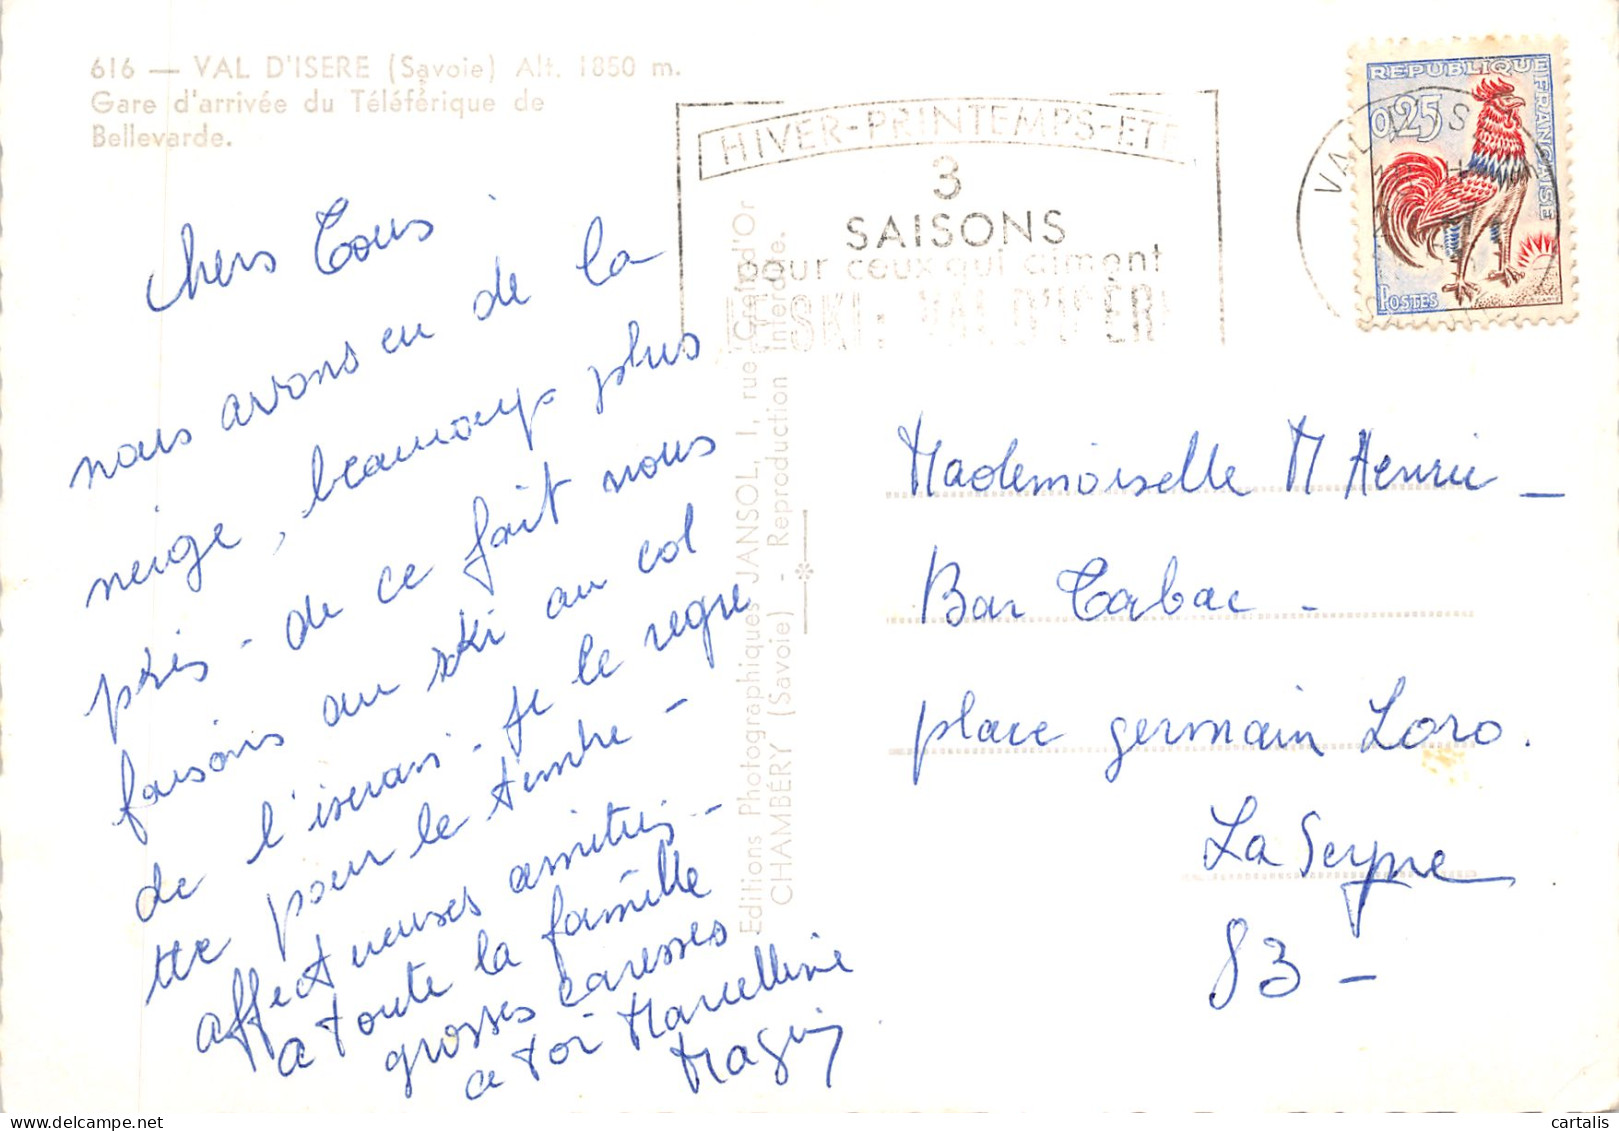 616 — VAL D'ISERE (Savoie) Alt. 1850 m.
Gare d'arrivée du Téléférique de
Bellevarde.
HIVER-PRINTEMPS-ETE
3
SAISONS
pour ceux qui aiment
LE SKI: VAL D'ISÈRE
VAL D'IS
REPUBLIQUE FRANÇAISE
0,25
POSTES
Chers Tous
nous avons eu de la
neige, beaucoup plus
près - de ce fait nous
faisons au ski au col
de l'iseran - je le regre
tte pour le timbre -
affectueuses amitiés -
a toute la famille
grosses caresses
a toi Marcelline
Editions Photographiques JANSOL, 1, rue Croix d'Or
CHAMBÉRY (Savoie) - Reproduction interdite.
Mademoiselle M Henrie -
Bar Tabac -
place germain Loro.
La Seyne
83 -
cartalis